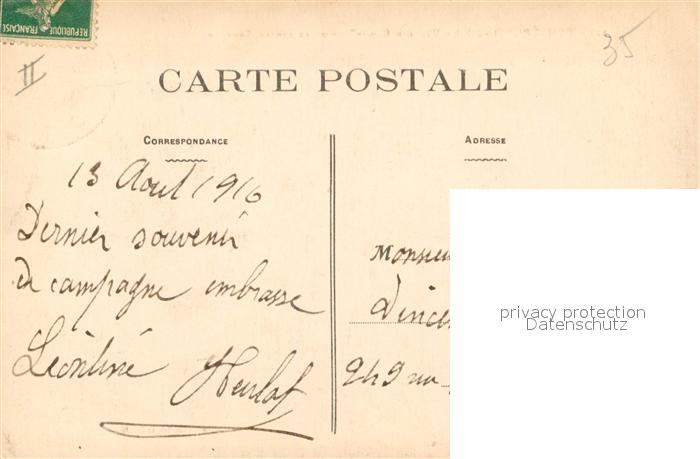 REPUBLIQUE FRANÇAISE
II
35
CARTE POSTALE
CORRESPONDANCE
ADRESSE
13 Aout 1916
Dernier souvenir
de campagne embrasse
Léontine
Monsieur
249 rue
privacy protection
Datenschutz